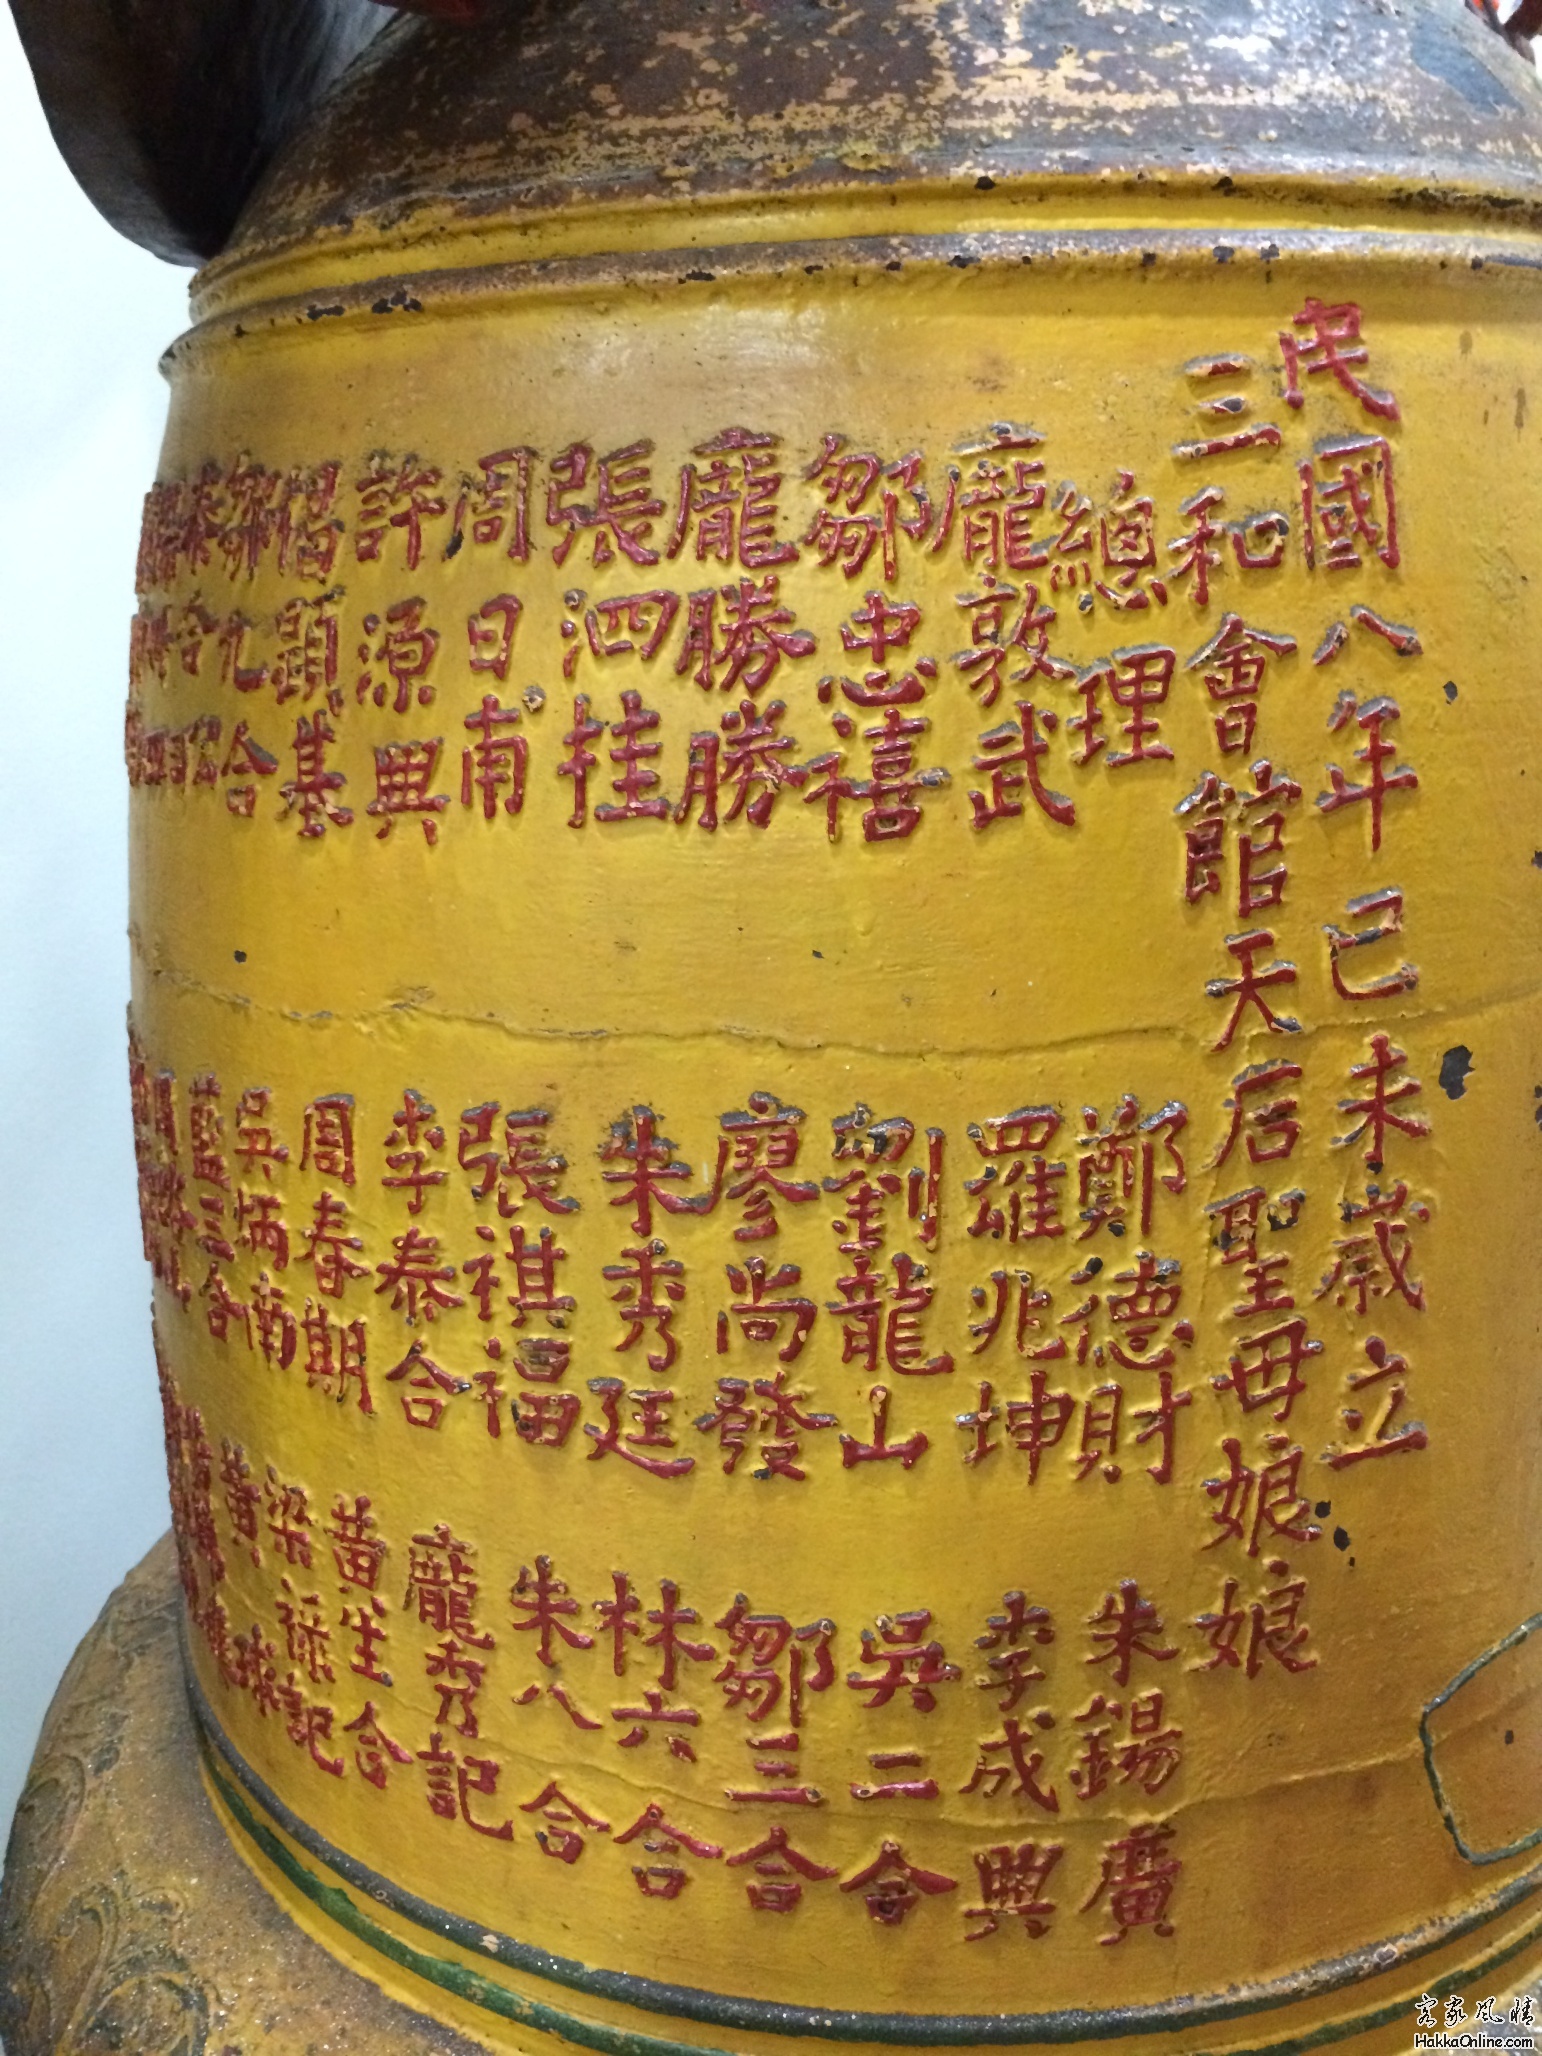 民國八年已未歲立
三和會館天后聖母娘娘
總理
龐敦武
鄒忠禧
龐勝勝
張泗桂
周日南
許源興
楊顕基
鄒九合
鄭德財
羅兆坤
劉龍山
廖尚發
朱秀廷
張祺福
李泰合
周春期
吳炳南
藍三合
朱錫廣
李成興
吳二合
鄒三合
林六合
朱八合
龐秀記
黃生合
梁禎記
客家風情
HakkaOnline.com